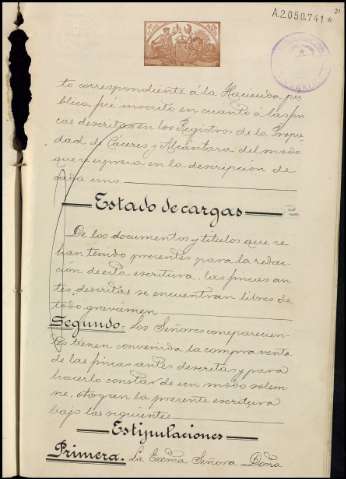 A.2.050.741
to correspondiente á la Hacienda pú-
blica, fué inscrito en cuanto á las fin-
cas descritas en los Registros de la Propie-
dad de Cáceres y Alcántara del modo
que se expresa en la descripción de
cada una
Estado de cargas
De los documentos y titulos que se
han tenido presentes para la redac-
ción de esta escritura, las fincas an-
tes descritas se encuentran libres de
todo gravamen
Segundo: Los Señores comparecien-
tes tienen convenida la compra venta
de las fincas antes descritas, y para
hacerlo constar de un modo solem-
ne, otorgan la presente escritura
bajo las siguientes
Estipulaciones
Primera: La Excma Señora Doña